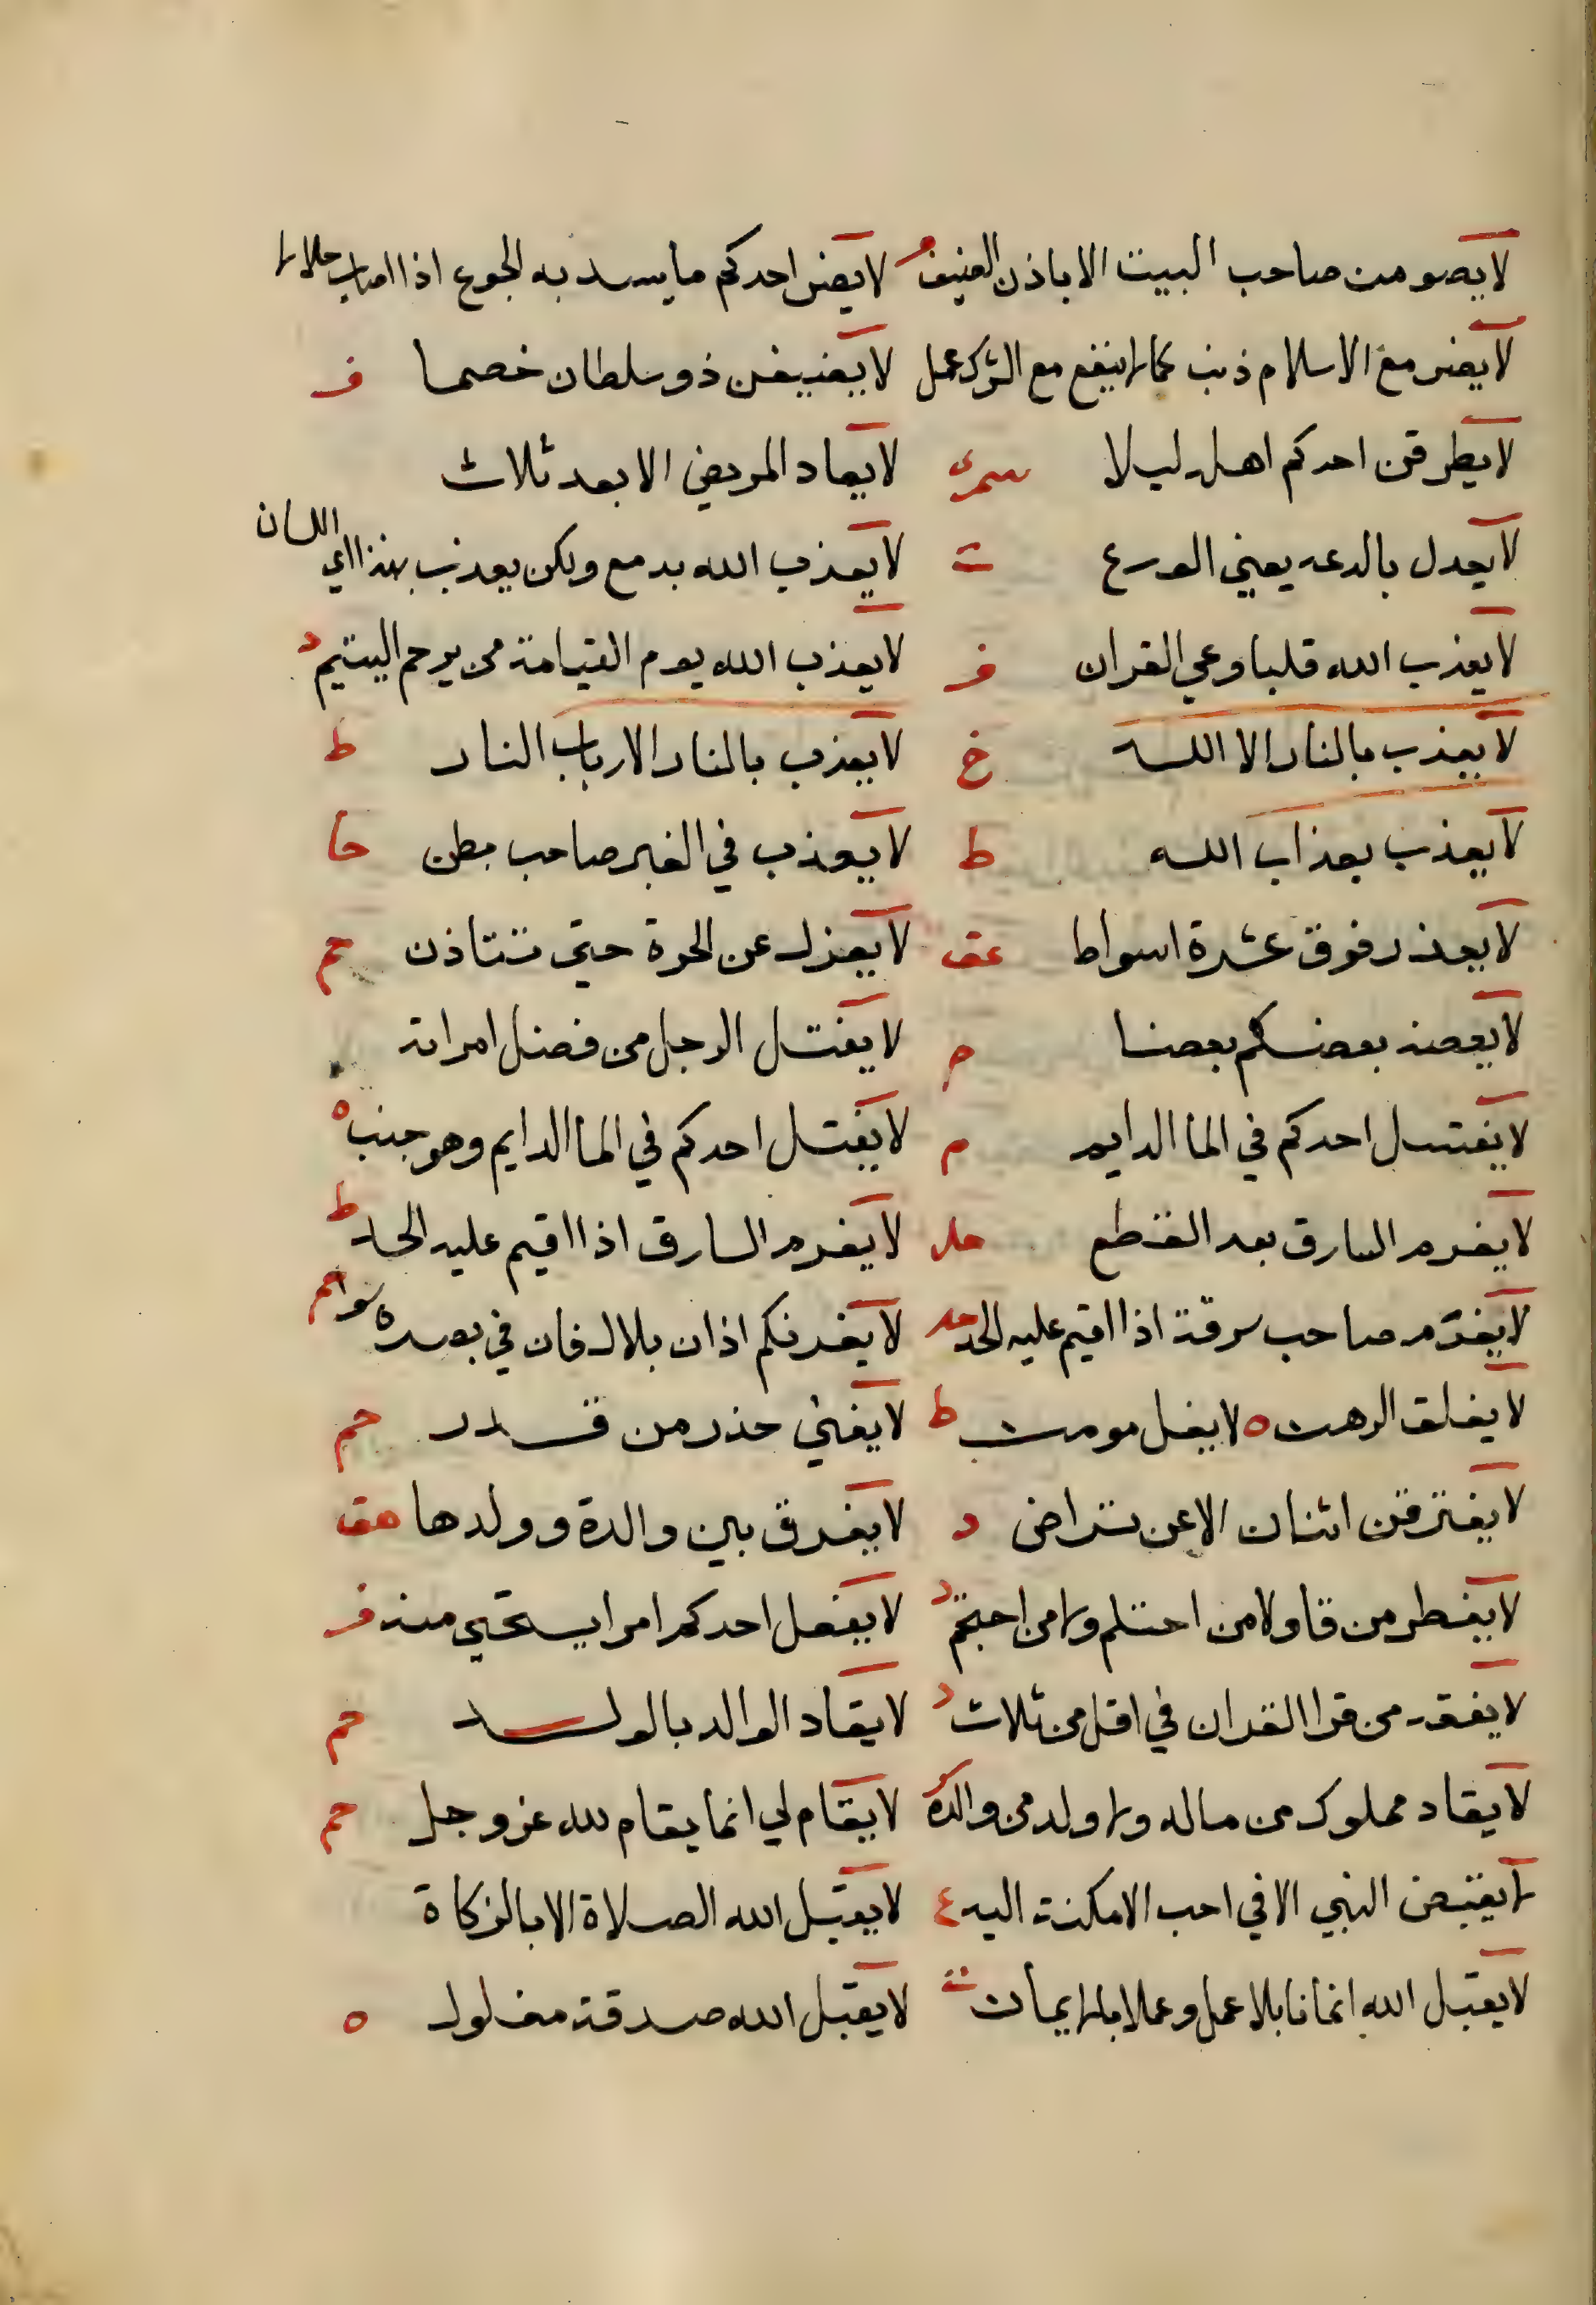 لا يصومن صاحب البيت الا باذن الضيف لا يضر احدكم ما يسد به الجوع اذا اصاب حلالا
لا يضر مع الاسلام ذنب كما لا ينفع مع الشرك عمل لا يضيفن ذو سلطان خصما ف
لا يطرقن احدكم اهله ليلا لا يعاد المريض الا بعد ثلاث
لا يعدل بالدعه يعني الورع ت لا يعذب الله بدمع ولكن يعذب بهذا اي اللسان
لا يعذب الله قلبا وعى القران ف لا يعذب الله يوم القيامة من يرحم اليتيم د
لا يعذب بالنار الا الله خ لا يعذب بالنار الا رب النار ط
لا يعذب بعذاب الله ط لا يعذب في القبر صاحب بطن حا
لا يعذر فوق عشرة اسواط عق لا يعزل عن الحرة حتى تستاذن حم
لا يعضه بعضكم بعضا م لا يغتسل الرجل من فضل امراته
لا يغتسل احدكم في الما الدايم م لا يغتسل احدكم في الما الدايم وهو جنب ه
لا يغرم السارق بعد القطع حل لا يغرم السارق اذا اقيم عليه الحد ط
لا يغرم صاحب سرقة اذا اقيم عليه الحد لا يغرنكم اذان بلال فان في بصره سوا حم
لا يغلق الرهن ه لا يغل مومن ط لا يغني حذر من قدر حم
لا يفترقن اثنان الا عن تراض د لا يفرق بين والدة وولدها هق
لا يفطر من قا ولا من احتلم ولا من احتجم د لا يفعل احدكم امرا يستحي منه ف
لا يفقه من قرا القران في اقل من ثلاث د لا يقاد الوالد بالولد حم
لا يقاد مملوك من ماله ولا ولد من والده لا يقام لي انما يقام لله عز وجل حم
لا يقبض النبي الا في احب الامكنة اليه ع لا يقبل الله الصلاة الا بالزكاة
لا يقبل الله ايمانا بلا عمل وعملا بلا ايمان لا يقبل الله صدقة من غلول ه